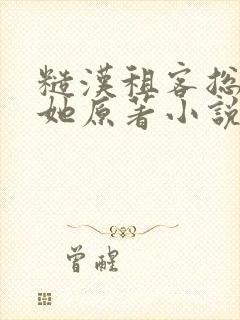 糙漢租客揔
她原著小說
曾醒